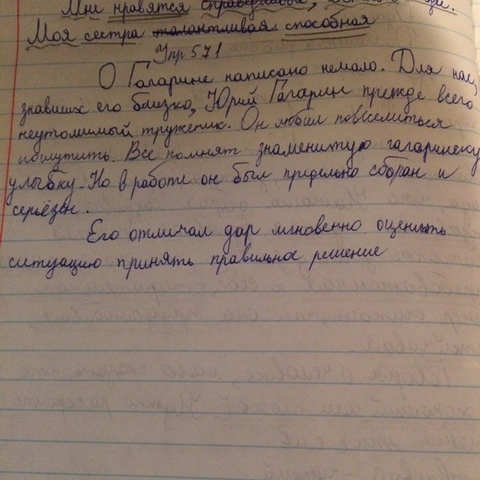 Мне нравятся
Моя сестра талантливая способная
Упр 571
О Гагарине написано немало. Для нас,
знавших его близко, Юрий Гагарин прежде всего
неутомимый труженик. Он любил повеселиться
пошутить. Все помнят знаменитую гагаринску
улыбку. Но в работе он был предельно собран и
серьёзен.
Его отличал дар мгновенно оценить
ситуацию принять правильное решение